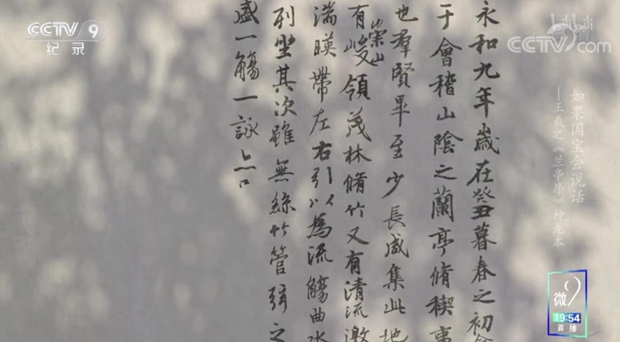 CCTV 9
纪录
bilibili
CCTV.com
如果国宝会说话
——王羲之《兰亭序》神龙本
永和九年歲在癸丑暮春之初
于會稽山陰之蘭亭脩稧事
也羣賢畢至少長咸集此地
有崇山峻領茂林脩竹又有清流激
湍暎帶左右引以為流觴曲水
列坐其次雖無絲竹管弦之
盛一觴一詠亦
微9
19:54
直播